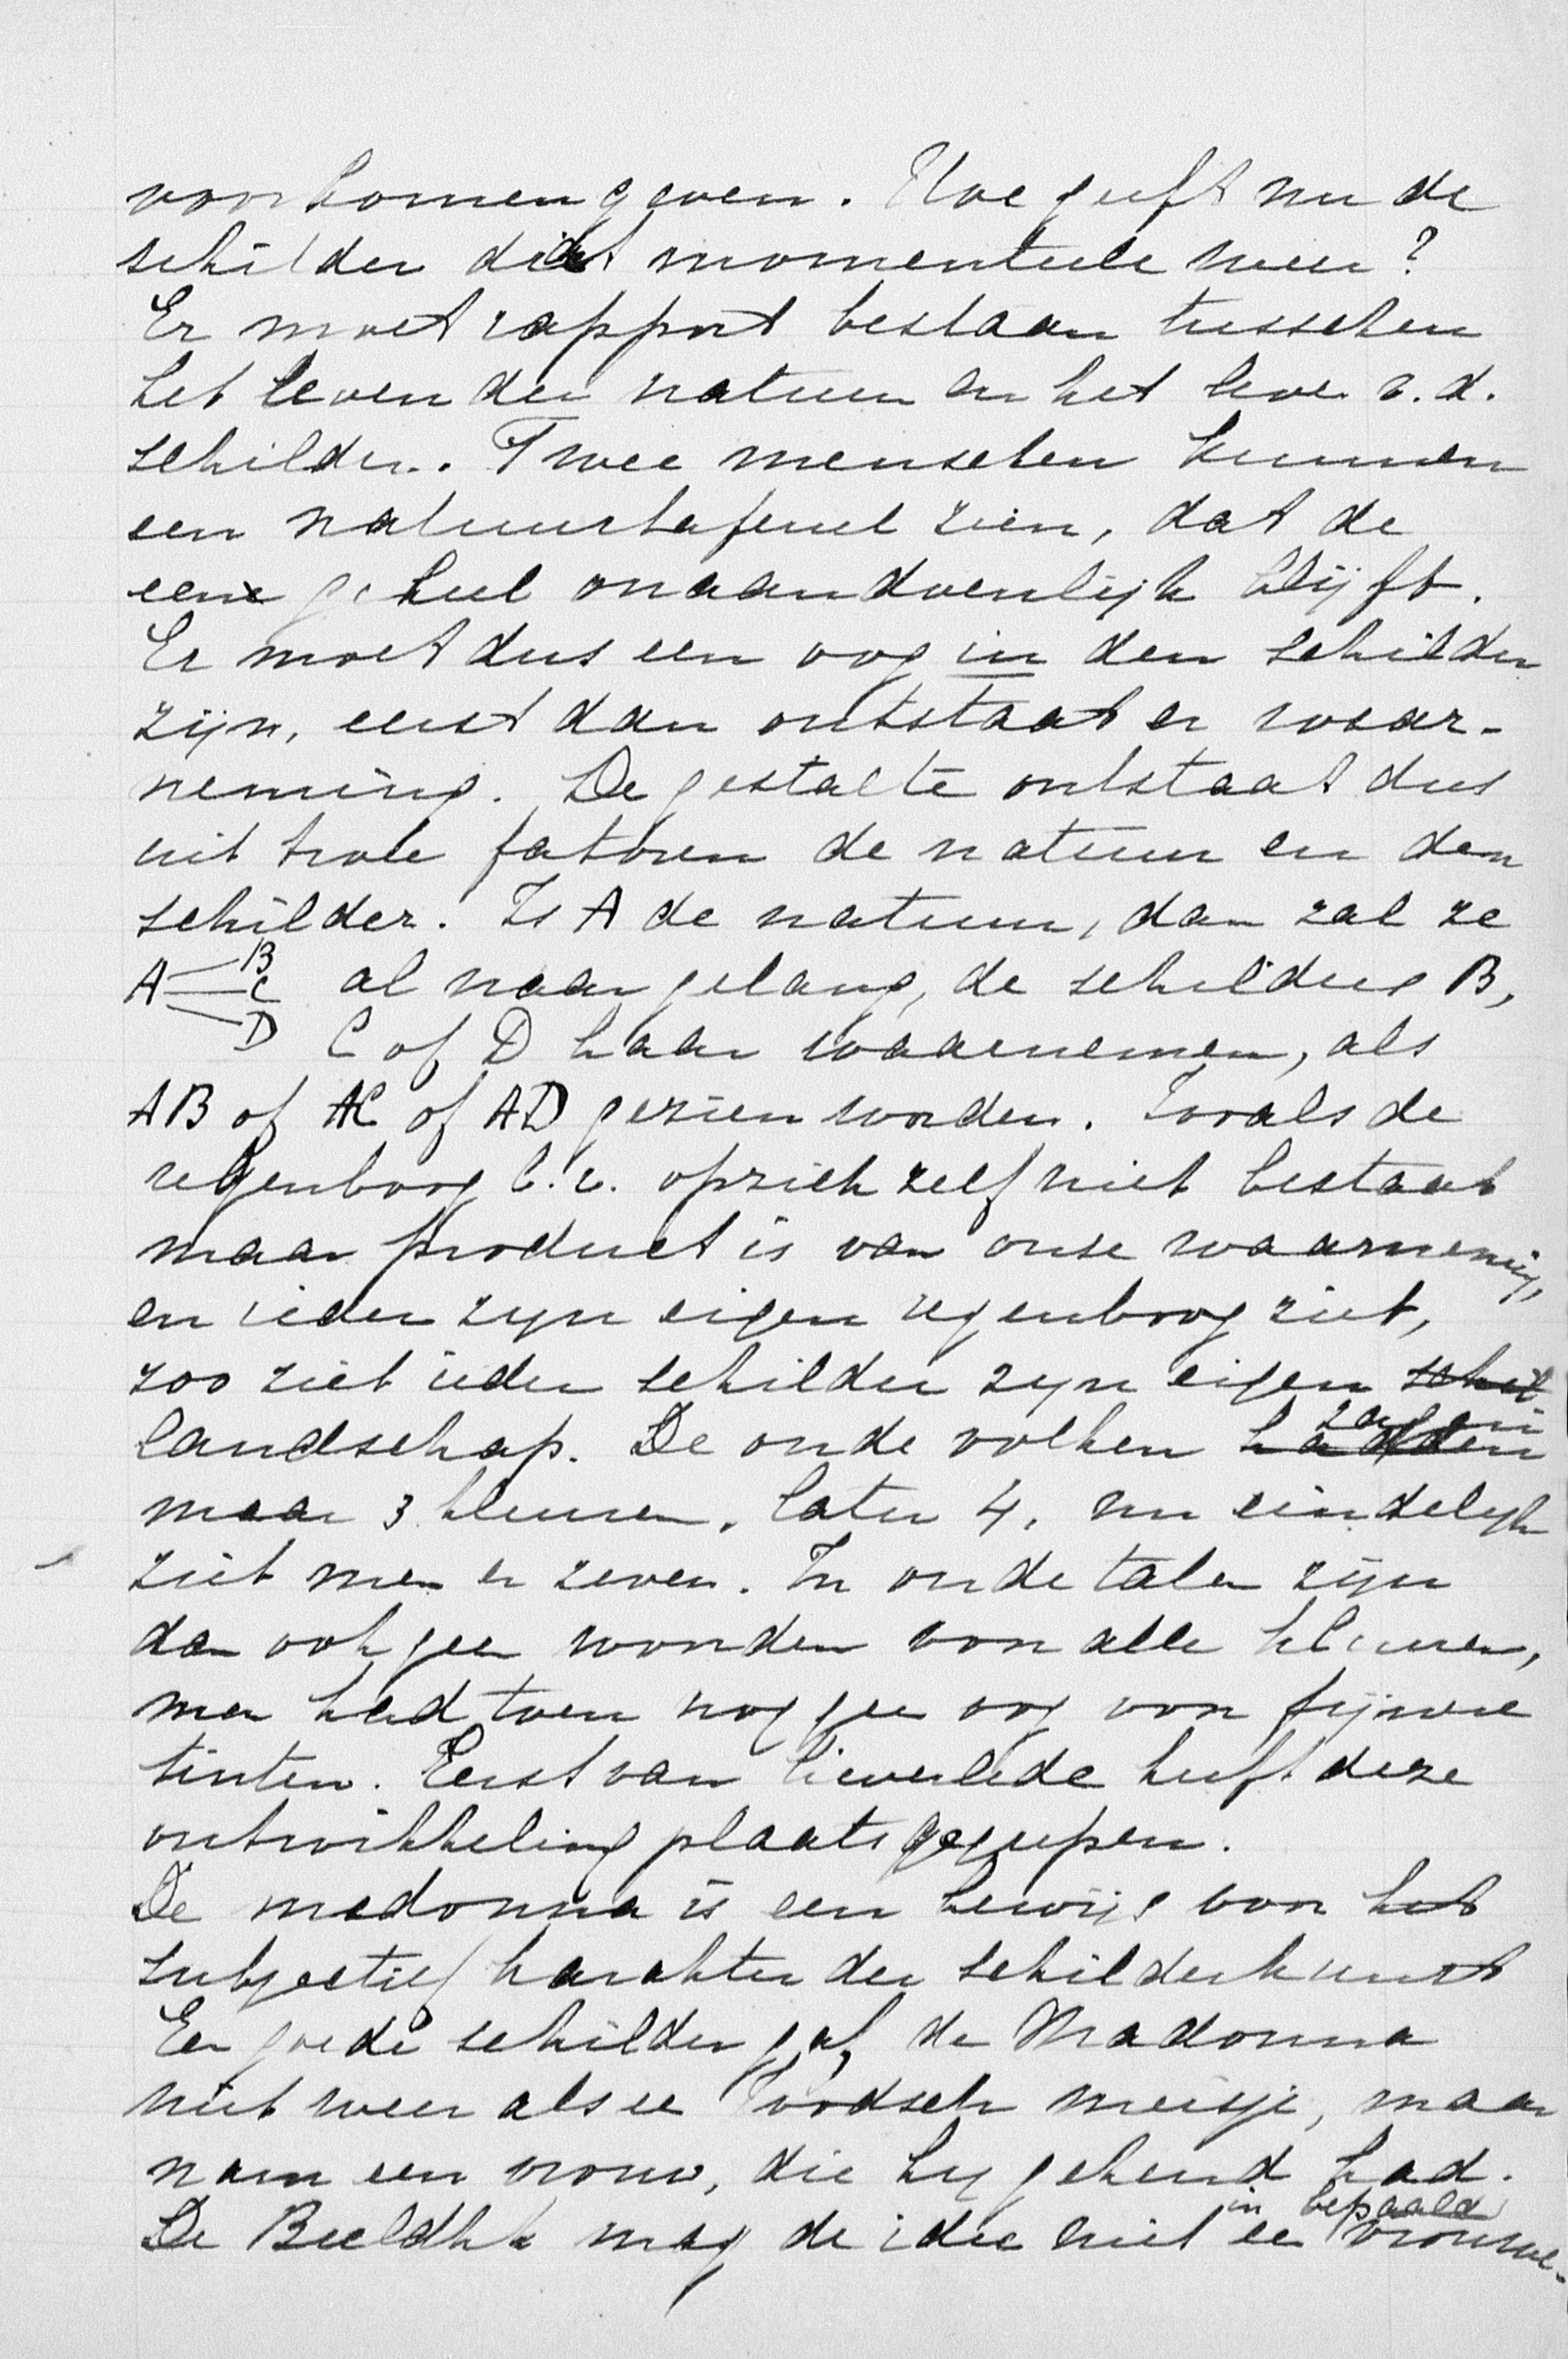 voorkomen geven. Hoe geeft nu de
schilder dit momenteele weer?
Er moet rapport bestaan tusschen
het leven der natuur en het leven v.d.
schilder. Twee menschen kunnen
een natuurtafereel zien, dat de
eene geheel onaandoenlijk blijft.
Er moet dus een oog in den schilder
zijn, eerst dan ontstaat er waar-
neming. De gestalte ontstaat dus
uit twee fatoren de natuur en den
schilder. Is A de natuur, dan zal ze
A B C D al naar gelang, de schilders B,
C of D haar waarnemen, als
AB of AC of AD gezien worden. Zooals de
regenboog b.v. opzich zelf niet bestaat
maar product is van onze waarneming,
en ieder zyn eigen regenboog ziet,
zoo ziet ieder schilder zyn eigen schil
landschap. De oude volken hadden zagen
maar 3 kleuren, later 4, nu eindelyk
ziet men er zeven. In oude talen zijn
dan ook geen woorden voor alle kleuren,
men had toen nog geen oog voor fijnere
tinten. Eerst van lieverlede heeft deze
ontwikkeling plaats gegrepen.
De madonna is een bewijs voor het
subjectief karakter der schilderkunst
Een goede schilder gaf de Madonna
niet weer als een Joodsch meisje, maar
nam een vrouw, die hy gekend had.
De Beeldhk mag de idee niet in een bepaald vrouwe-